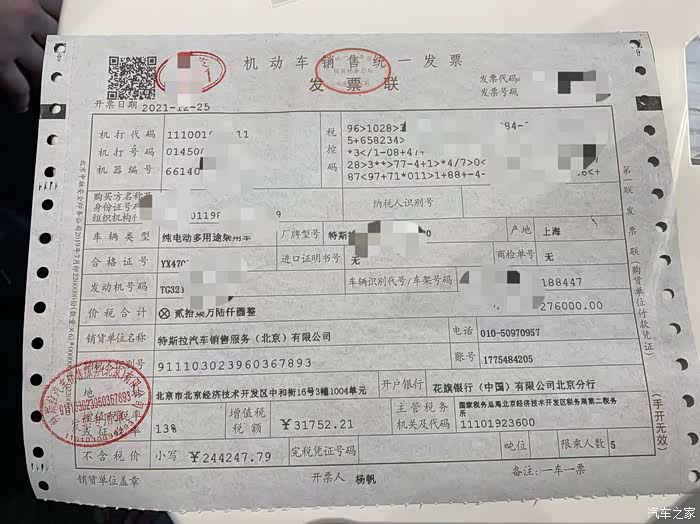 机动车销售统一发票
发票联
发票代码
发票号码
开票日期 2021-12-25
机打代码 111001
机打号码 01450
机器编号 66140
税控码
96>1028>
5+658234>
*3</1-08+4/+
28>3**>77-4+1>*4/7>0<
87<97+71*011>1+88+-4-
购买方名称及
身份证号
组织机构代
纳税人识别号
车辆类型 纯电动多用途乘用车 厂牌型号 特斯拉 产地 上海
合格证号 YX470 进口证明书号 无 商检单号 无
发动机号码 TG321 车辆识别代号/车架号码 188447
价税合计 ⊗贰拾柒万陆仟圆整 276000.00
销货单位名称 特斯拉汽车销售服务(北京)有限公司 电话 010-50970957
911103023960367893 账号 1775484205
地 北京市北京经济技术开发区中和街16号3幢1004单元 开户银行 花旗银行(中国)有限公司北京分行
13% 增值税税额 ￥31752.21 主管税务机关及代码 国家税务总局北京经济技术开发区税务局第二税务
11101923600
不含税价 小写 ￥244247.79 完税凭证号码 吨位 限乘人数 5
销货单位盖章 开票人 杨帆 备注:一车一票
第一联 发票联(购货单位付款凭证)
(手开无效)
911103023960367893
汽车之家